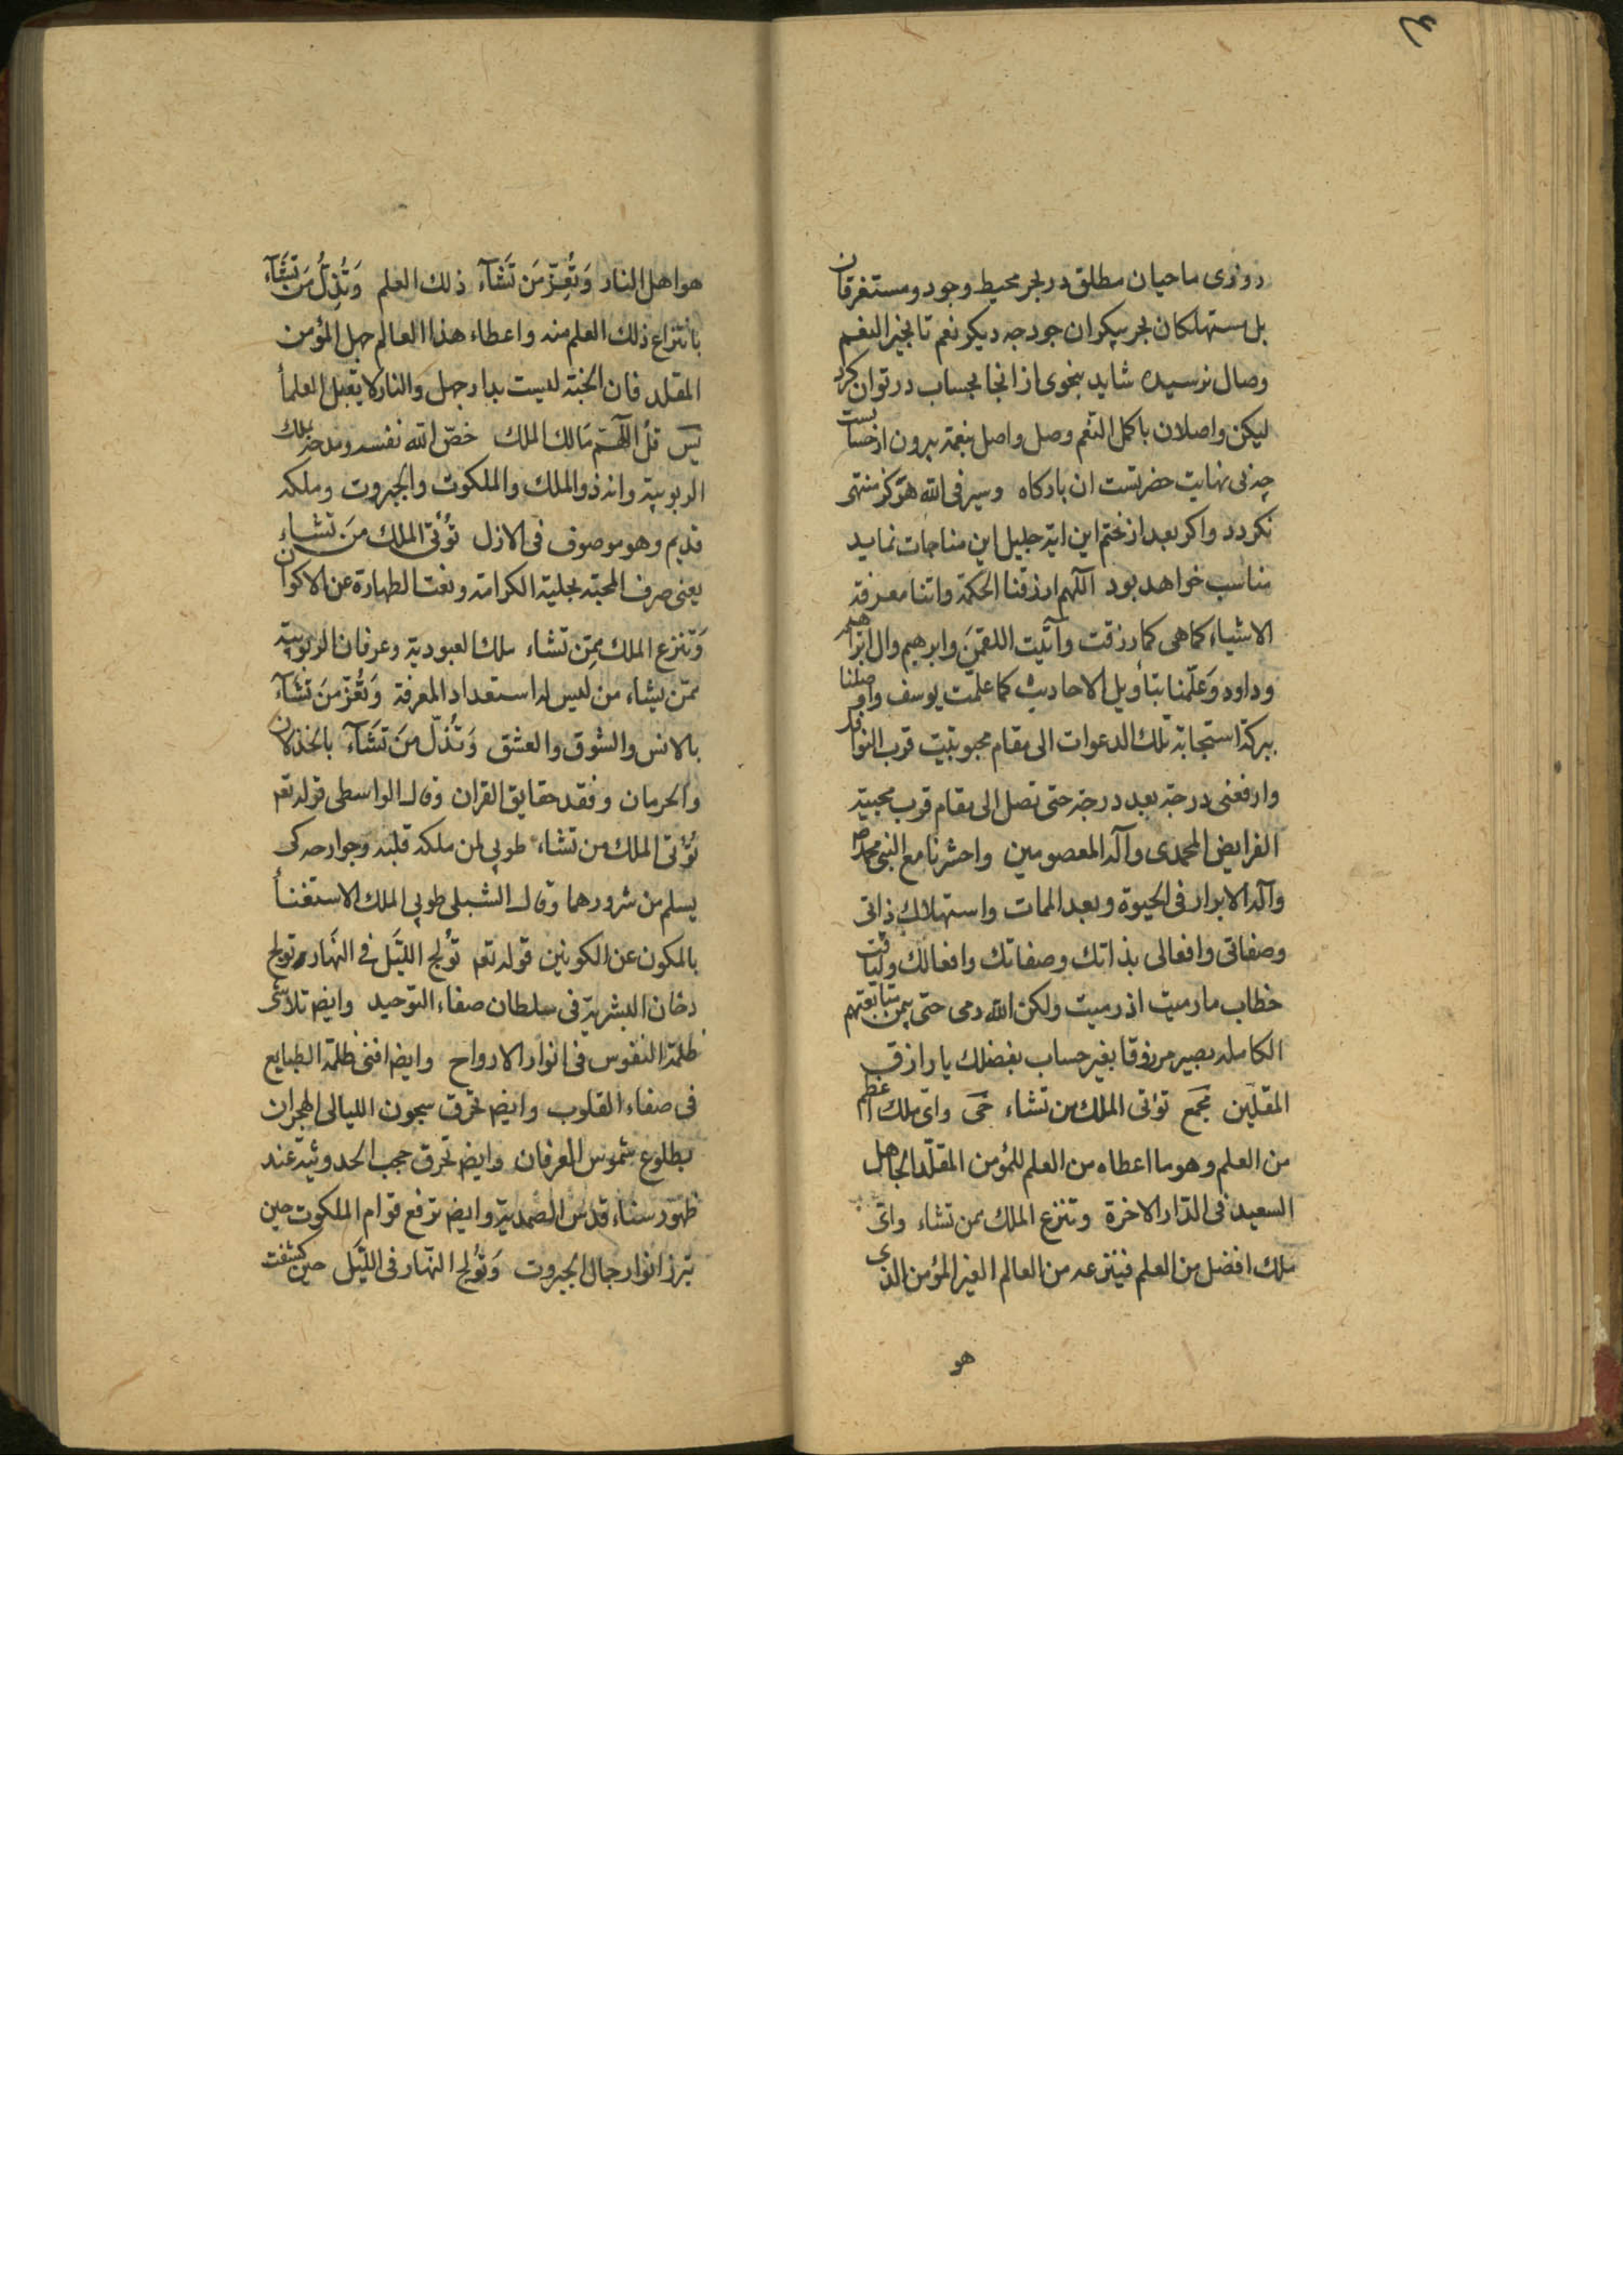 روزی ماحیان مطلق در بحر محیط وجود و مستغرقان
بل مستهلکان بحر بیکران جود جه دیکر نعم تا بخیر النعم
وصال نرسیده شاید بنحوی از انجا بحساب در توان کرد
لیکن واصلان باکمل النعم وصل واصل بنعمة بیرون از حسابست
چه بی نهایت حضرتست ان بارکاه وسیر فی الله هرکز منتهی
نکردد واکر بعد از ختم این ایة جلیل این مناجات نماید
مناسب خواهد بود اللهم ارزقنا الحکمة واتنا معرفة
الاشیاء کماهی کما رزقت وآتیت اللقمن وابرهیم وال ابراهیم
وداود وَعَلّمنا بتأویل الاحادیث کما علمّت یوسف واوصلنا
ببرکة استجابة تلک الدعوات الی مقام محبوبیّت قرب النوافل
وارفعنی درجة بعد درجة حتی نصل الی مقام قرب محبیّة
الفرایض المحمدی وآله المعصومین واحشرنا مع النبی محمد ص
وآله الابرار فی الحیوة وبعد الممات واستهلاک ذاتی
وصفاتی وافعالی بذاتک وصفاتک وافعالک ولیاقت
خطاب مارمیت اذ رمیت ولکن الله رمی حتی بیمن متابعتهم
الکاملة بصیر مرزوقا بغیر حساب بفضلک یا رازق
المقلّین مجمع تؤتی الملک من تشاء حی وایّ ملک اعظم
من العلم وهو ما اعطاه من العلم للمؤمن المقلّد الجاهل
السعید فی الدّار الاخرة وتنزع الملک ممن تشاء وایّ
ملک افضل من العلم فینزعه من العالم الغیر المؤمن الذی
هو
هو اهل النار وَتُعِزّ مَن تَشَآء ذلک العلم وَتُذِلُّ مَن تَشَآء
بانتزاع ذلک العلم منه واعطاء هذا العالم جهل المؤمن
المقلد فان الجنّة لیست بدار جهل والنار لا یقبل العلمأ
یس قل اللّهمّ مَالک الملک خصّ الله نفسه ومدحه بملک
الربوبیّة وانه ذو الملک والملکوت والجبروت وملکه
قدیم وهو موصوف فی الازل تُؤْتی الملک مَن تَشاء
یعنی صرف المحبّة بحلیة الکرامة ونعت الطهارة عن الاکوان
وَتنزع الملک ممِّن تشاء ملک العبودیّة وعرفان الربوبیّة
ممّن یشاء من لیس له استعداد المعرفة وَتُعّزّ مَن تَشَآء
بالانس والشوق والعشق وَتُذّل مَن تَشَآء بالخذلان
والحرمان وفقد حقایق القران وقال الواسطی قوله تعم
تُؤتی الملک من تشاء طوبی لمن ملکه قلبه وجوارحه کی
یسلم من شرورهما وقال الشبلی طوبی الملک الاستغنأ
بالمکون عن الکونین قوله تعم تُولج اللّیَل فی النّهَار تولج
دخان البشریّة فی سلطان صفاء التوّحید وایضه تلاشی
ظلمة النفوس فی انوار الارواح وایضه افنی ظلمة الطبایع
فی صفاء القلوب وایضه تحرق سجون اللیالی الهجران
بطلوع شموس العرفان وایضه تحرق حجب الحدوثیّة عند
ظهور سناء قدس الصّمدیّة وایضه ترفع قوام الملکوت حین
تبرز انوار جمال الجبروت وَتُولج النّهار فی اللّیَل حین کشفت